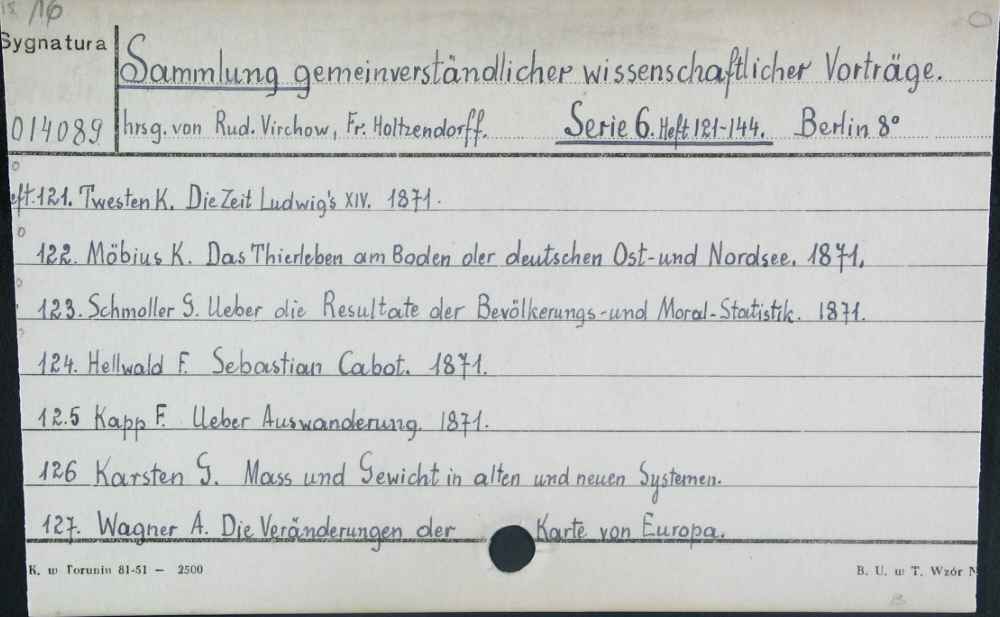 15 /16
Sygnatura
Sammlung gemeinverständlicher wissenschaftlicher Vorträge.
014089 hrsg. von Rud. Virchow, Fr. Holtzendorff. Serie 6. Heft 121-144. Berlin 8°
eft.121. Twesten K. Die Zeit Ludwig's XIV. 1871.
122. Möbius K. Das Thierleben am Boden der deutschen Ost- und Nordsee. 1871.
123. Schmoller G. Ueber die Resultate der Bevölkerungs- und Moral-Statistik. 1871.
124. Hellwald F. Sebastian Cabot. 1871.
12.5 Kapp F. Ueber Auswanderung. 1871.
126 Karsten G. Mass und Gewicht in alten und neuen Systemen.
127. Wagner A. Die Veränderungen der Karte von Europa.
K. w Toruniu 81-51 — 2500
B. U. w T. Wzór N